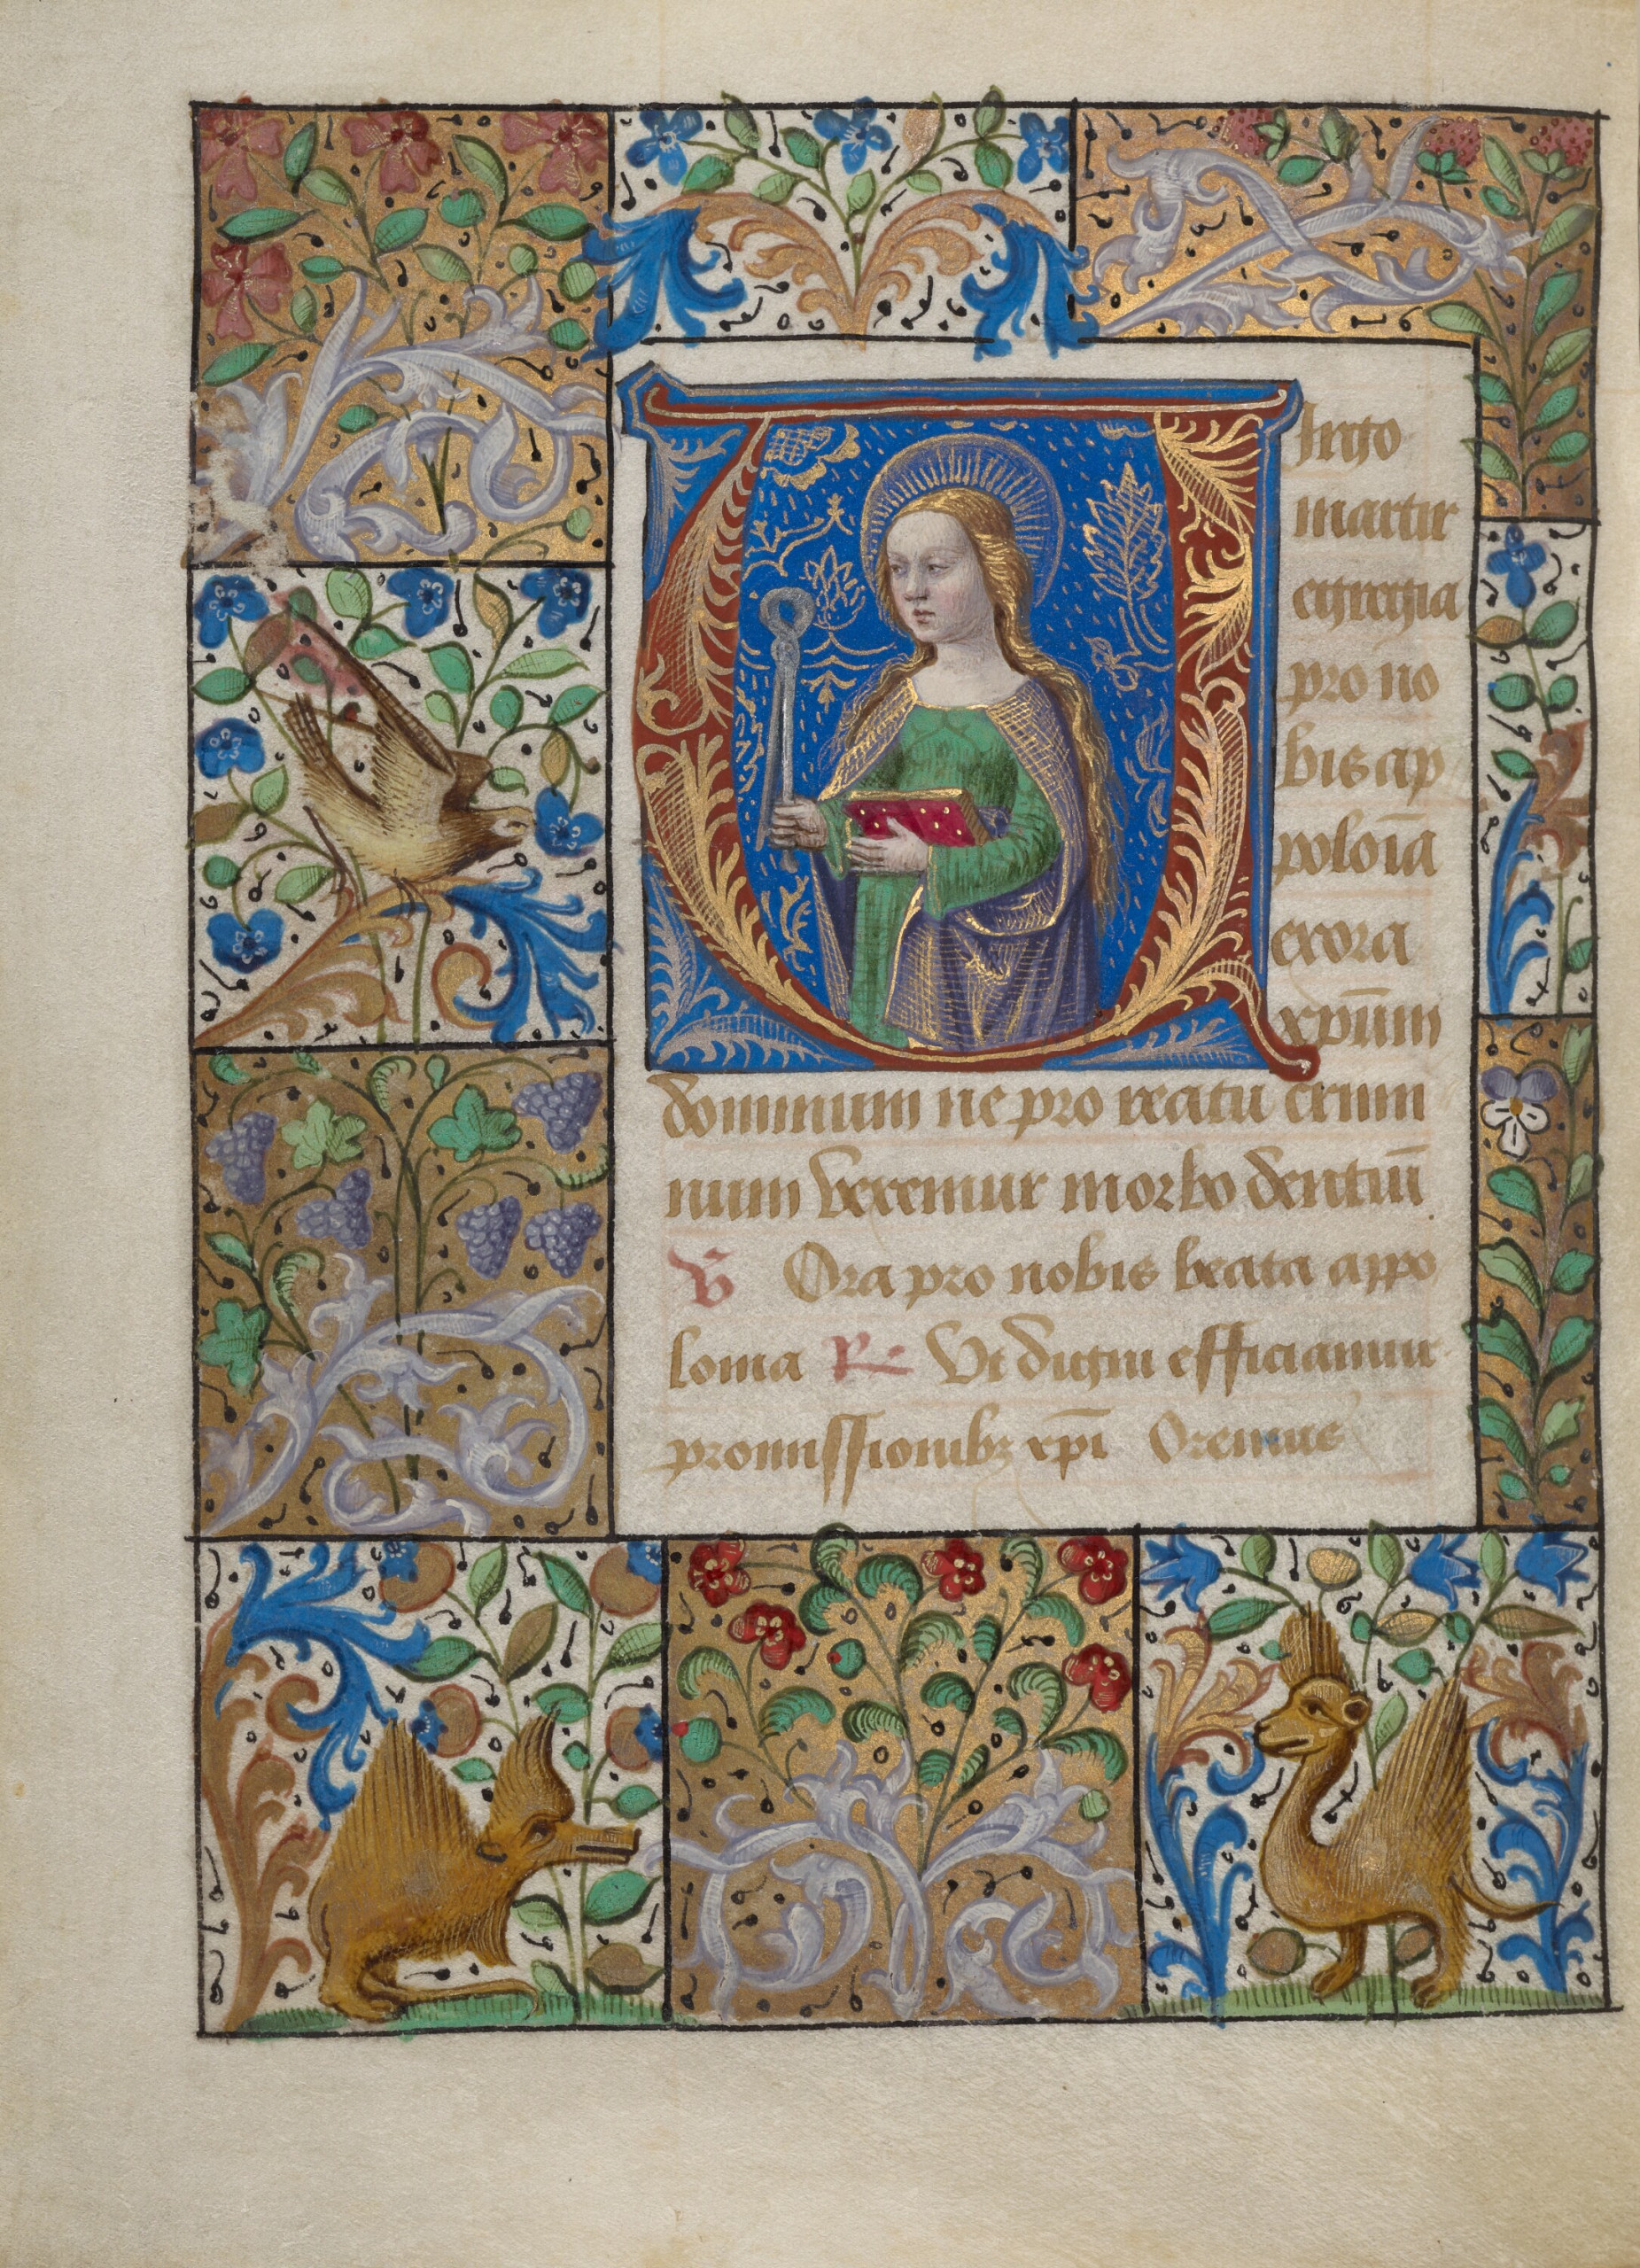 Virgo
martir
egregia
pro no
bis ap
poloia̅
exora
xpu̅m
dominum ne pro reatu crimi
num vexemur morbo dentiu̅
V̅ Ora pro nobis beata appo
lonia R̅ Ut digni efficiamur
promissionibꝫ xpi̅ Oremus